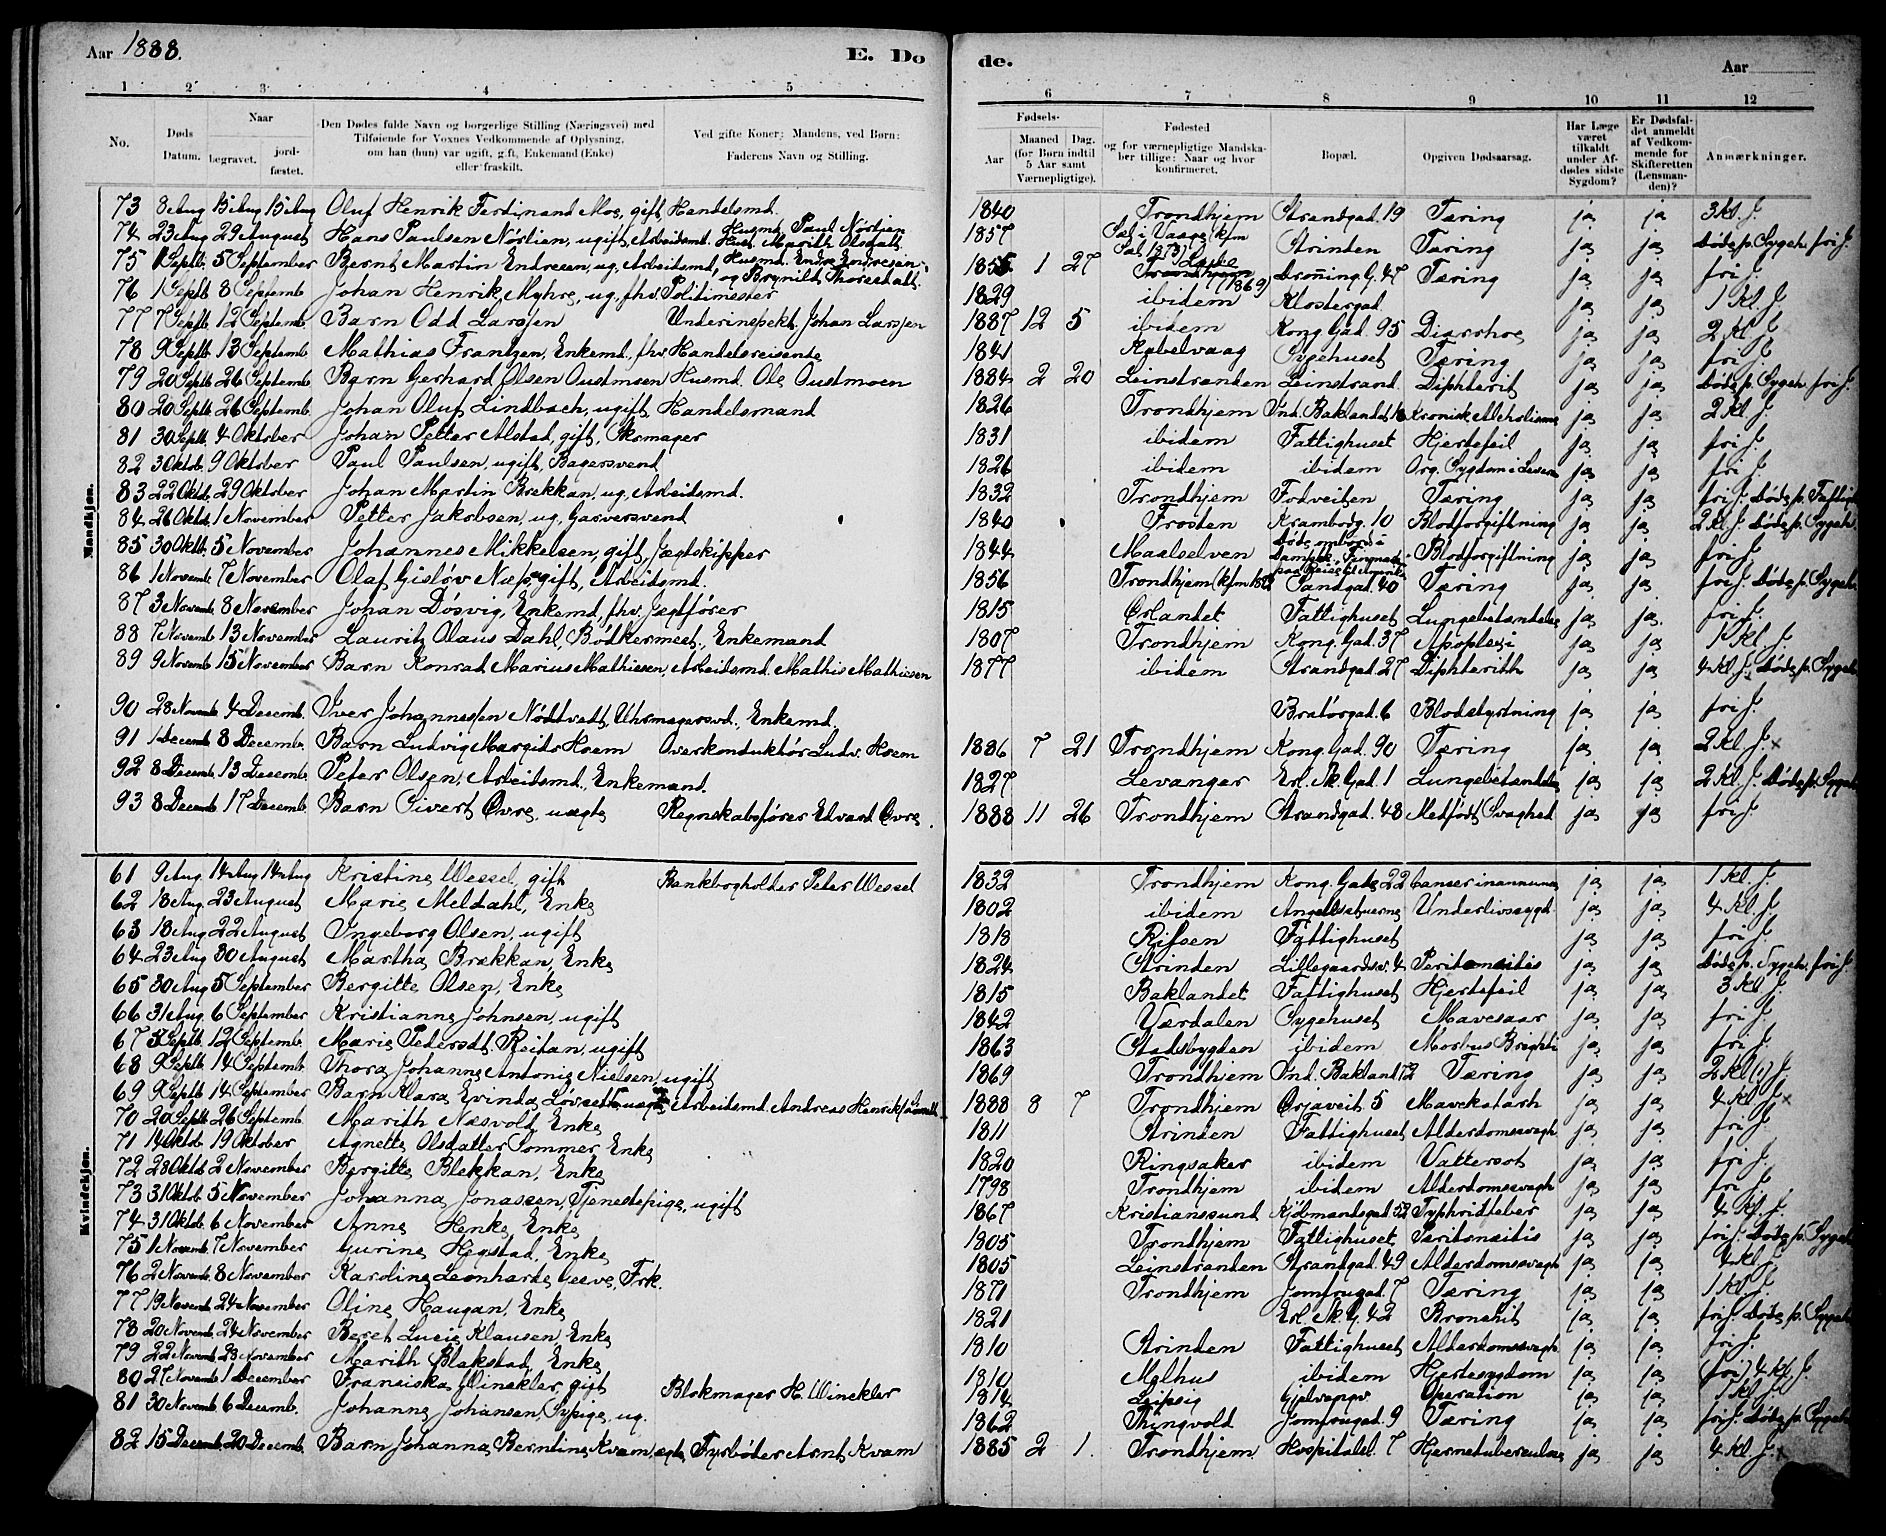 Aar 1888.
E. Dø
de.
Aar
1 2 3 4 5
6 7 8 9 10 11 12
No.
Døds Datum.
Naar
begravet.
jordfæstet.
Den Dødes fulde Navn og borgerlige Stilling (Næringsvei) med
Tilføiende for Voxnes Vedkommende af Oplysning,
om han (hun) var ugift, gift, Enkemand (Enke)
eller fraskilt.
Ved gifte Koner: Mandens, ved Børn:
Faderens Navn og Stilling.
Fødsels-
Aar
Maaned Dag.
(for Børn indtil
5 Aar samt
Værnepligtige).
Fødested
og for værnepligtige Mandska-
ber tillige: Naar og hvor
konfirmeret.
Bopæl.
Opgiven Dødsaarsag.
Har Læge
været
tilkaldt
under Af-
dødes sidste
Sygdom?
Er Dødsfal-
det anmeldt
af Vedkom-
mende for
Skifteretten
(Lensman-
den)?
Anmærkninger.
Mandkjøn.
73 8 Aug 15 Aug 15 Aug Oluf Henrik Ferdinand Moe, gift, Handelsmd. 1840 Trondhjem Strandgad. 19 Tæring ja ja 3 kl. J.
74 23 Aug 29 August Hans Paulsen Nørlien, ugift, Arbeidsmd. Husmd. Paul Nørlien Hust. Marith Olsdatt. 1857 Sel i Vaage, kfm Sel 1873 Strinden Tæring ja ja Døde p. Sygeh. fri J.
75 1 Septb. 5 September Bernt Martin Endresen, ug. Arbeidsmd. Husmd. Endre Endresen og Brynild Thoresdatt. 1855 1 27 Trondhjem 1869) Droning. G. 47 Tæring ja ja fri J.
76 1 Septb 8 Septemb Johan Henrik Myhre, ug., fhv. Politimester 1829 ibidem Klostergad. ja ja 1 Kl. J.
77 7 Septb. 12 Septemb. Barn Odd Larssen Underinspekt. Johan Larssen 1887 12 5 ibidem Kong. Gad. 95 Diarrhoe ja ja 2 Kl. J.
78 9 Septb. 13 Septemb. Mathias Frantzen, Enkemd., fhv. Handelsreisende 1841 Kabelvaag Sygehuset Tæring ja ja fri J.
79 20 Septb. 26 Septemb. Barn Gerhard Olsen Oustmoen Husmd. Ole Oustmoen 1884 2 20 Leinstranden Leinstrand. Diphterit ja ja Døde p. Sygeh. fri J.
80 20 Septb. 26 Septemb. Johan Oluf Lindbach, ugift, Handelsmand 1826 Trondhjem Ind. Baklandet Kronisk Alcholisme ja ja 2 Kl. J.
81 30 Septb. 4 Oktober Johan Petter Alstad, gift, Skomager 1831 ibidem Fattighuset Hjertefeil ja ja fri J.
82 3 Oktb. 9 Oktober Paul Paulsen, ugift, Bagersvend 1826 ibidem ibidem Org. Sygdom i ja ja fri J.
83 22 Oktb. 29 Oktober Johan Martin Brekkan, ug. Arbeidsmd. 1832 Trondhjem Fodveiten Tæring ja ja fri J. Døde p. Fattigh
84 26 Oktb. 1 November Petter Jakobsen, ug. Garversvend 1840 Frosten Krambodg. 10 Blodforgiftning ja ja 2 Kl. J. Døde p. Sygeh.
85 30 Oktb. 5 November Johannes Mikkelsen, gift, Jægtskipper 1844 Maalselven Døde ombord i Dampsk. paa Reise Blodforgiftning ja ja fri J.
86 1 Novemb. 7 November Olaf Gisløv Næss, gift, Arbeidsmd. 1856 Trondhjem (kfm Sandgad. 40 Tæring ja ja fri J. Døde p. Sygeh.
87 3 Novemb. 8 November Johan Døsvig, Enkemd, fhv. Jægtfører 1815 Ørlandet Fattighuset Lungebetændelse ja ja. fri J.
88 7 Novemb. 13 November Lauritz Olaus Dahl, Bødkermest., Enkemand 1807 Trondhjem Kong. Gad. 37 Apoplexi ja ja 1 Kl. J.
89 9 Novemb 15 November Barn Konrad Marius Mathiesen, Arbeidsmd. Mathis Mathiesen 1877 ibidem Strandgad. 27 Diphterith ja ja 4 Kl. J. Døde p. Sygeh
90 28 Novemb 4 Decemb. Iver Johannessen Nødtvedt, Uhrmagersvd., Enkemd. Bratørgad. 6 Blodstyrtning ja ja fri J.
91 1 Decemb 8 Decemb. Barn Ludvig Margido Hoem Overkonduktør Ludv. Hoem 1886 7 21 Trondhjem Kong. Gad. 90 Tæring ja ja 2 Kl. J. x
92 8 Decemb. 13 Decemb. Peter Olsen, Arbeidsmd., Enkemand. 1827 Levanger Erl. Sk. Gad. 1 Lungebetændelse ja ja 2 Kl. J. Døde p. Sygeh.
93 8 Decemb. 17 Decemb. Barn Sivert Øvre, uægte Regnskabsfører Edvard Øvre. 1888 11 26 Trondhjem Strandgad. 48 Medfødt Svaghed ja ja fri J.
Kvindekjøn.
61 9 Aug. 14 Aug 14 Aug Kristine Wessel, gift Bankbogholder Peter Wessel 1832 Trondhjem Kong. Gade 22 Cancer in mamma ja ja 1 Kl. J.
62 18 Aug. 23 August Marie Meldahl, Enke 1802 ibidem Underlivssygd. ja ja 4 Kl. J
63 18 Aug 22 August Ingeborg Olsen, ugift 1818 Rissen Fattighuset ja ja fri J.
64 23 Aug 30 August Martha Brækkan, Enke 1824 Strinden Lillegaardsv. 4 Peritoneitis ja ja Døde p. Sygeh. fri J.
65 30 Aug 5 September Bergitte Olsen, Enke 1815 Baklandet Fattighuset Hjertefeil ja ja 3 Kl. J
66 31 Aug. 6 September Kristianne Johnsen, ugift 1842 Værdalen Sygehuset Mavesaar ja ja fri J.
67 5 Septb. 12 Septemb. Marie Pedersdt. Reitan, ugift 1863 Stadsbygden ibidem Morbus Brighti ja ja fri J.
68 9 Septb 14 Septemb. Thora Johanne Antonie Nielsen, ugift 1869 Trondhjem Ind. Bakland 72 Tæring ja ja 2 Kl J.
69 9 Septb 14 September Barn Klara Evinda Løvseth uægte Arbeidsmd. Andreas Henrik 1888 8 7 Trondhjem Ørjaveit 5 Mavekatarh ja ja 4 Kl J x
70 20 Septb 26 Septemb. Marith Næsvold Enke 1811 Strinden Fattighuset Alderdomssvagh ja ja fri J.
71 14 Oktb. 19 Oktober Agnette Olsdatter Sommer, Enke 1820 Ringsaker ibidem Vattersot ja ja fri J.
72 28 Oktb 2 November Bergitte Blekkan, Enke 1798 Trondhjem ibidem Alderdomssvagh ja ja fri J.
73 31 Oktb. 5 November Johanna Jonassen, Tjenestepige, ugift 1867 Kristianssund Kjøbmandsgad 52 Typhoidfeber ja ja 4 Kl. J.
74 31 Oktb. 6 November Anne Henke, Enke 1805 Trondhjem Fattighuset Peritoneitis ja ja fri J. Døde p. Sygeh
75 1 Novemb. 7 November Gurine Hegstad, Enke 1805 Leinstranden Strandgad. 49 Alderdomssvagh ja ja 4 Kl. J
76 2 Novemb. 8 November Karoline Leonharde Greve, Frk. 1871 Trondhjem Jomfrugad. 7 Tæring ja ja 1 Kl J.
77 19 Novemb. 24 November Oline Haugan, Enke 1821 Erl. Sk. G. 42 Bronchit ja ja fri J. Døde p. Sygeh
78 20 Novemb. 24 November Beret Lucie Klausen, Enke 1810 Strinden Fattighuset Alderdomssvagh ja ja fri J.
79 22 Novemb 28 November Marith Blakstad, Enke 1810 Melhus ibidem Hjertesygdom ja ja (fri) 4 Kl. J.
80 27 Novemb 1 December Fransiska Winckler, gift Blokmager H. Winckler 1814 Leipsig Operation ja ja 1 Kl. J.
81 30 Novemb 6 Decemb. Johanne Johansen, Sypige, ug. 1862 Thingvold Jomfrugad. 9 Tæring ja ja fri J. Døde p. Sygeh
82 15 Decemb. 20 Decemb. Barn Johanna Berntine Kvam, ægte Fyrbøder Arnt Kvam 1885 2 1. Trondhjem Hospitalsl. 7 Hjernetuberculose ja ja 4 Kl. J. x